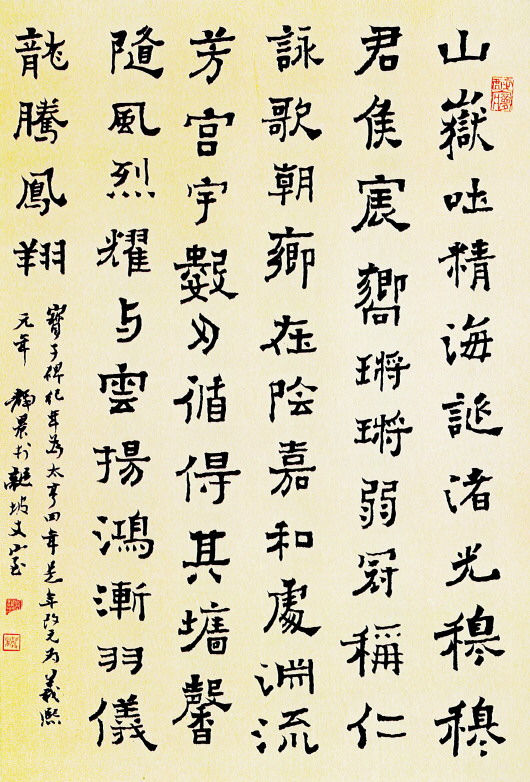 山嶽吐精海誕渚光穆穆
君侯宸嚮鏘鏘弱冠稱仁
詠歌朝鄉在陰嘉和處淵流
芳宮宇數刃循得其墻馨
隨風烈耀与雲揚鴻漸羽儀
龍騰鳳翔
寶子碑紀年為太亨四年是年改元為義熙
元年 靜晨於坡文室